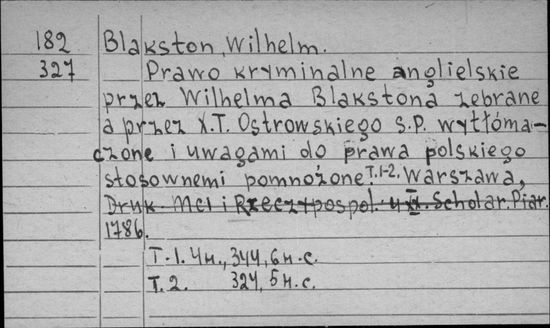 182 Blakston, Wilhelm.
327 Prawo kryminalne anglielskie
przez Wilhelma Blakstona zebrane
a przez X.T. Ostrowskiego S.P. wytłóma-
czone i uwagami do prawa polskiego
stosownemi pomnożone T.1-2. Warszawa,
Druk. MCI i Rzeczypospol. u XX. Scholar. Piar.
1786.
T.1. 4н., 344, 6н.с.
T.2. 324, 5н.с.